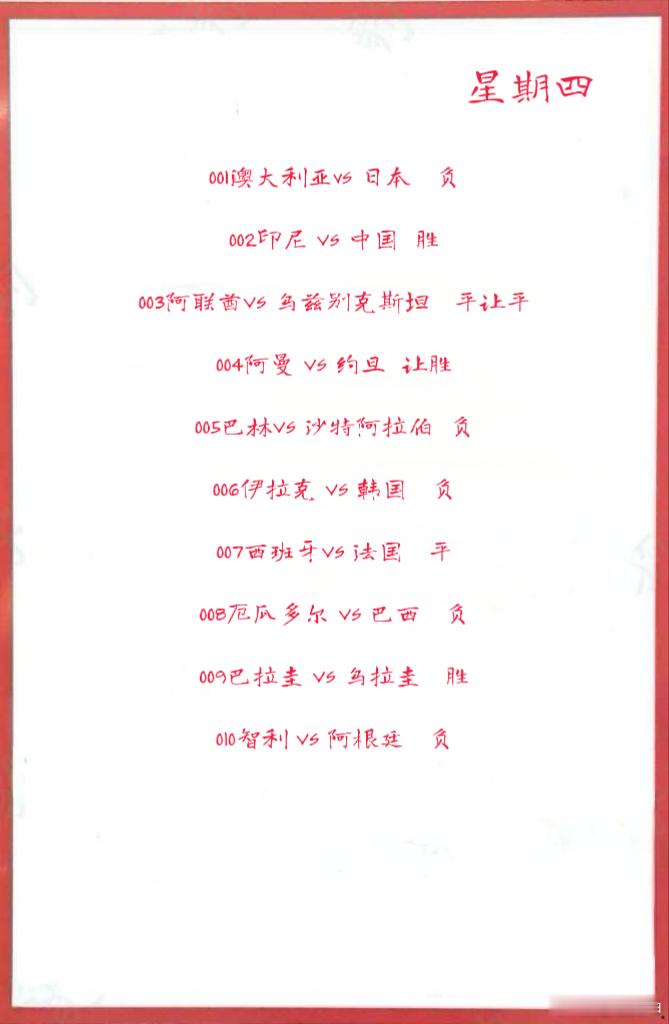 星期四
001澳大利亚vs 日本 负
002印尼 vs 中国 胜
003阿联酋vs 乌兹别克斯坦 平让平
004阿曼 vs 约旦 让胜
005巴林vs 沙特阿拉伯 负
006伊拉克 vs 韩国 负
007西班牙vs 法国 平
008厄瓜多尔 vs 巴西 负
009巴拉圭 vs 乌拉圭 胜
010智利 vs 阿根廷 负